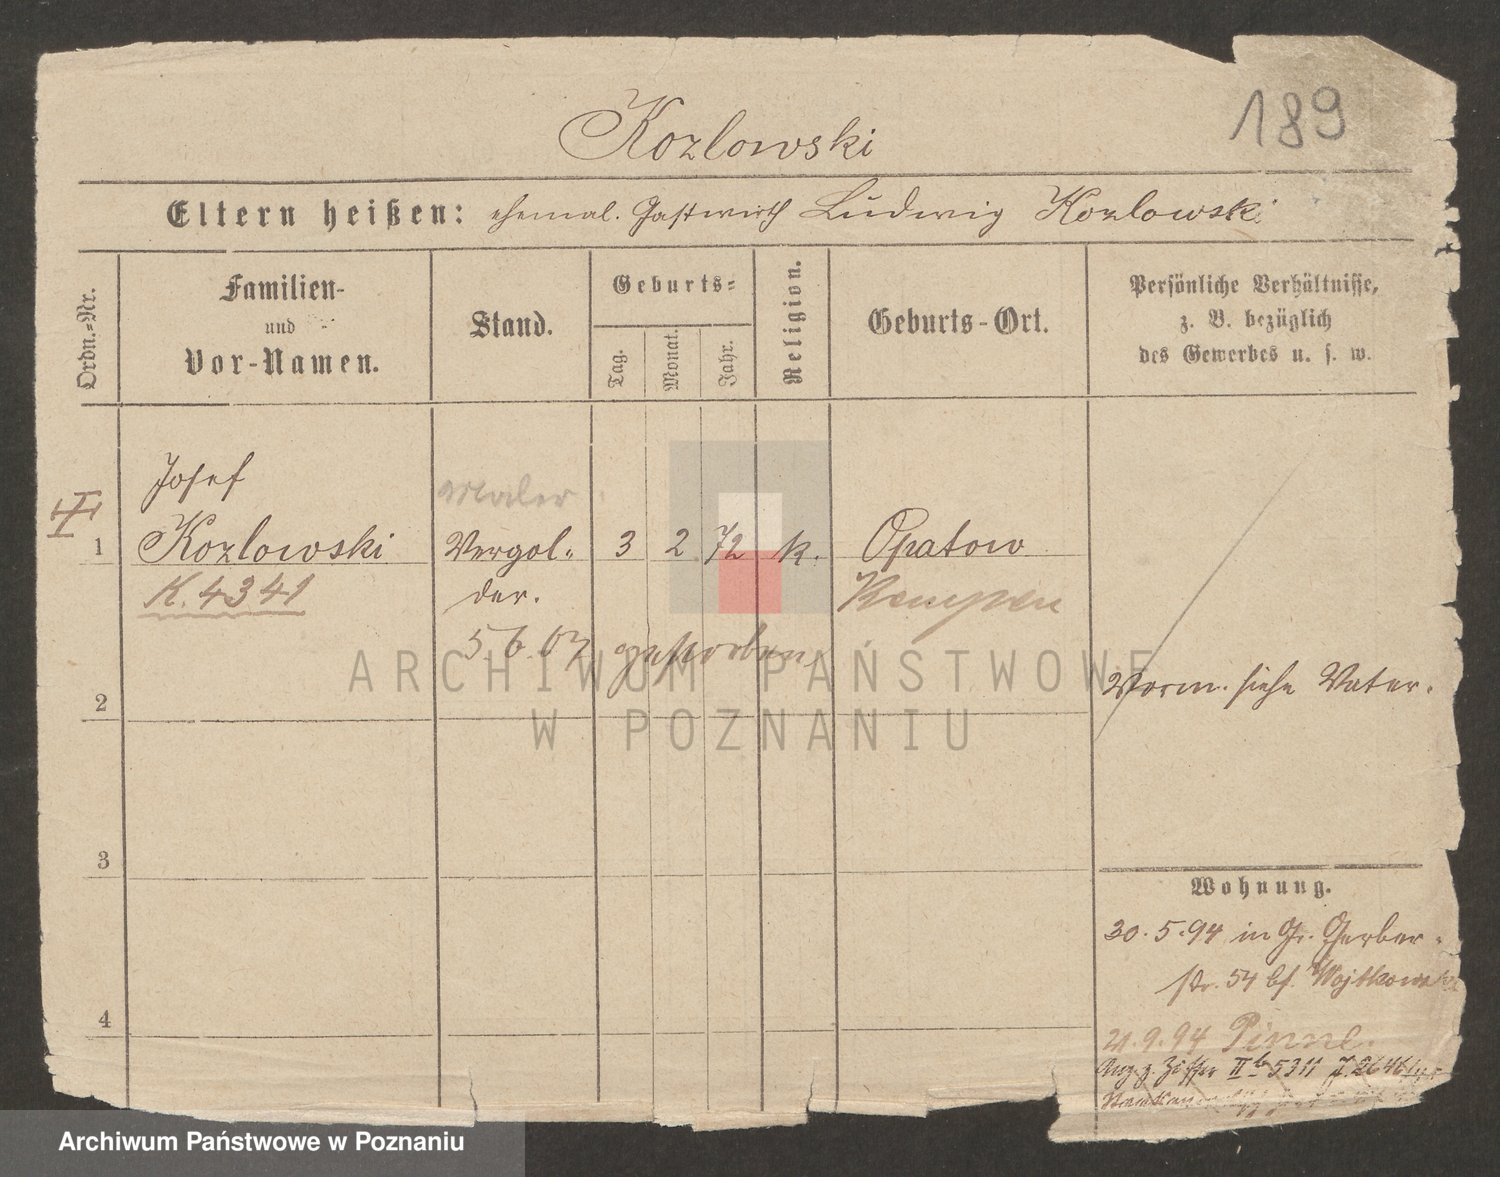 Kozlowski
189
Eltern heißen: ehemal. Gastwirth Ludwig Kozlowski
Ordn.-Nr.
Familien-
und
Vor-Namen.
Stand.
Geburts-
Tag.
Monat.
Jahr.
Religion.
Geburts-Ort.
Persönliche Verhältnisse,
z. B. bezüglich
des Gewerbes u. s. w.
Josef
Maler
1 Kozlowski Vergol- 3 2 72 k. Opatow
K. 4341 der. Kempen
5.6.07 gestorben
ARCHIWUM PAŃSTWOWE
W POZNANIU
2
Vorm. siehe Vater.
3
Wohnung.
30.5.94 in Gr. Gerber-
str. 54 bs. Wojtkowski
4
21.9.94 Pinne.
Anz. z. Ziffer II b 5311
Archiwum Państwowe w Poznaniu